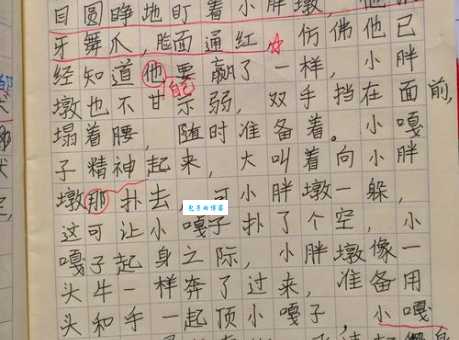 目圆睁地盯着小胖墩，他
牙舞爪，脸面通红，仿佛他已
经知道他要赢了一样，小胖
自己
墩也不甘示弱，双手挡在面前，
塌着腰，随时准备着。小嘎
子精神起来，大叫着向小胖
墩那扑去，可小胖墩一躲，
这可让小嘎子扑了个空，小
嘎子起身之际，小胖墩像一
头牛一样奔了过来，准备用
头和手一起顶小嘎子，小嘎